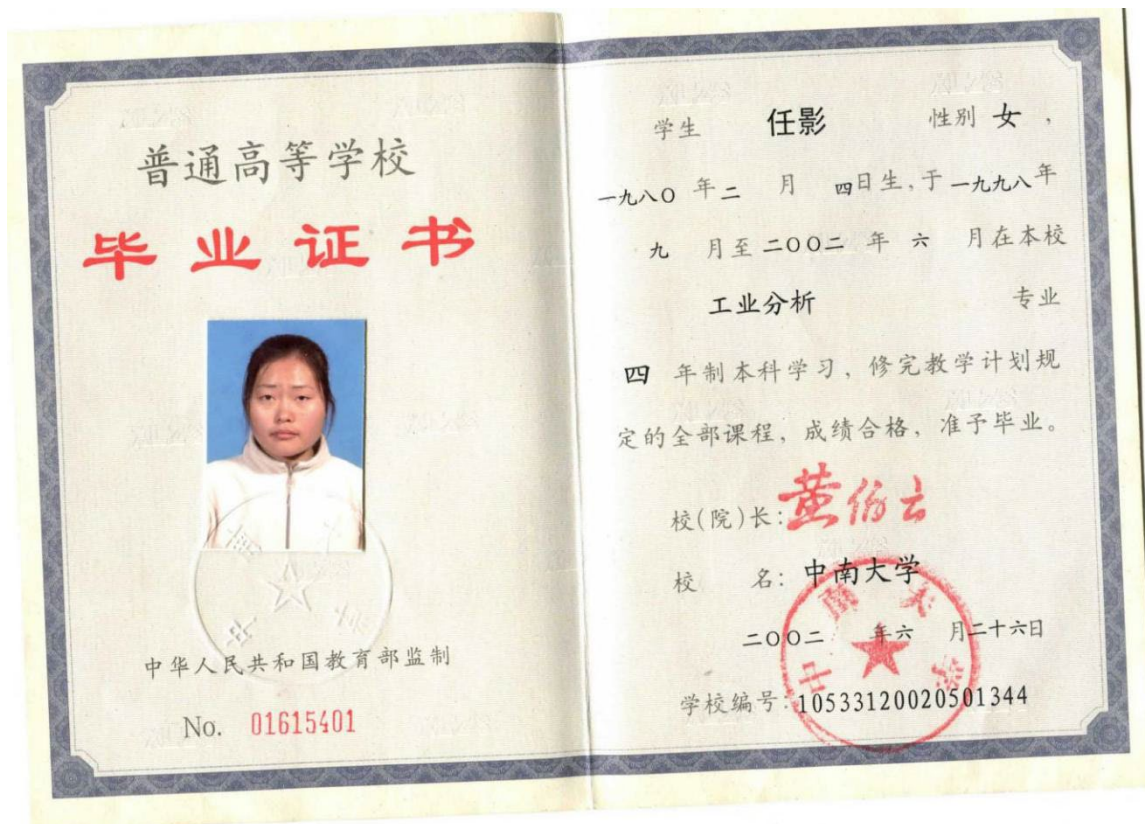 普通高等学校
毕业证书
中南大学
中华人民共和国教育部监制
No. 01615401
学生 任影 性别 女，
一九八〇 年 二 月 四日生，于 一九九八年
九 月至 二〇〇二 年 六 月在本校
工业分析 专业
四 年制本科学习，修完教学计划规
定的全部课程，成绩合格，准予毕业。
校(院)长：黄伯云
校 名：中南大学
中南大学
二〇〇二 年六 月二十六日
学校编号：10533120020501344